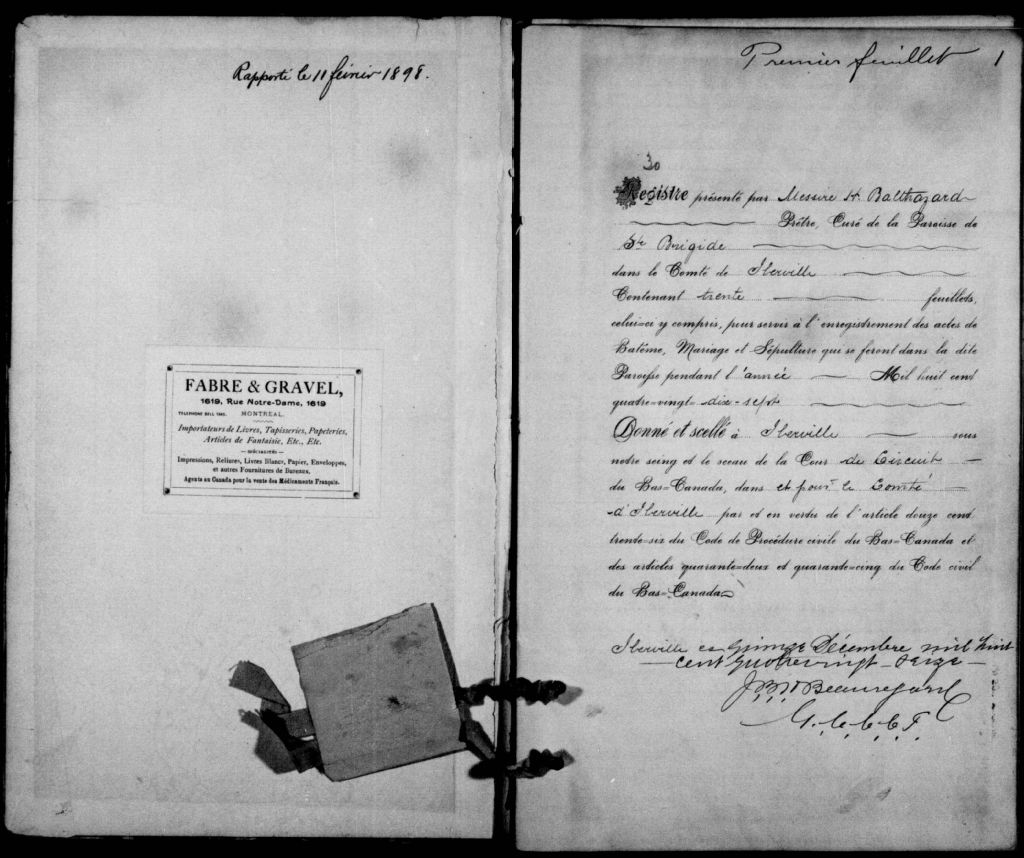 Rapporté le 11 février 1898.
FABRE & GRAVEL,
1619, Rue Notre-Dame, 1619
TELEPHONE BELL MONTREAL.
Importateurs de Livres, Tapisseries, Papeteries,
Articles de Fantaisie, Etc., Etc.
— SPÉCIALITÉS —
Impressions, Reliures, Livres Blancs, Papier, Enveloppes,
et autres Fournitures de Bureaux.
Agents au Canada pour la vente des Médicaments Français.
Premier feuillet 1
30
Registre présenté par Messire H Balthazard
Prêtre, Curé de la Paroisse de
Ste Brigide
dans le Comté de Iberville
Contenant trente feuillets,
celui-ci y compris, pour servir à l'enregistrement des actes de
Batême, Mariage et Sépulture qui se feront dans la dite
Paroisse pendant l'année — Mil huit cent
quatre-vingt dix-sept
Donné et scellé à Iberville — sous
notre seing et le sceau de la Cour de Circuit —
du Bas-Canada, dans et pour le Comté —
d'Iberville par et en vertu de l'article douze cent
trente-six du Code de Procédure civile du Bas-Canada et
des articles quarante-deux et quarante-cinq du Code civil
du Bas-Canada
Iberville ce quinze Décembre mil huit
— cent quatrevingt-seize —
Beauregard
G. C. C. C. I.